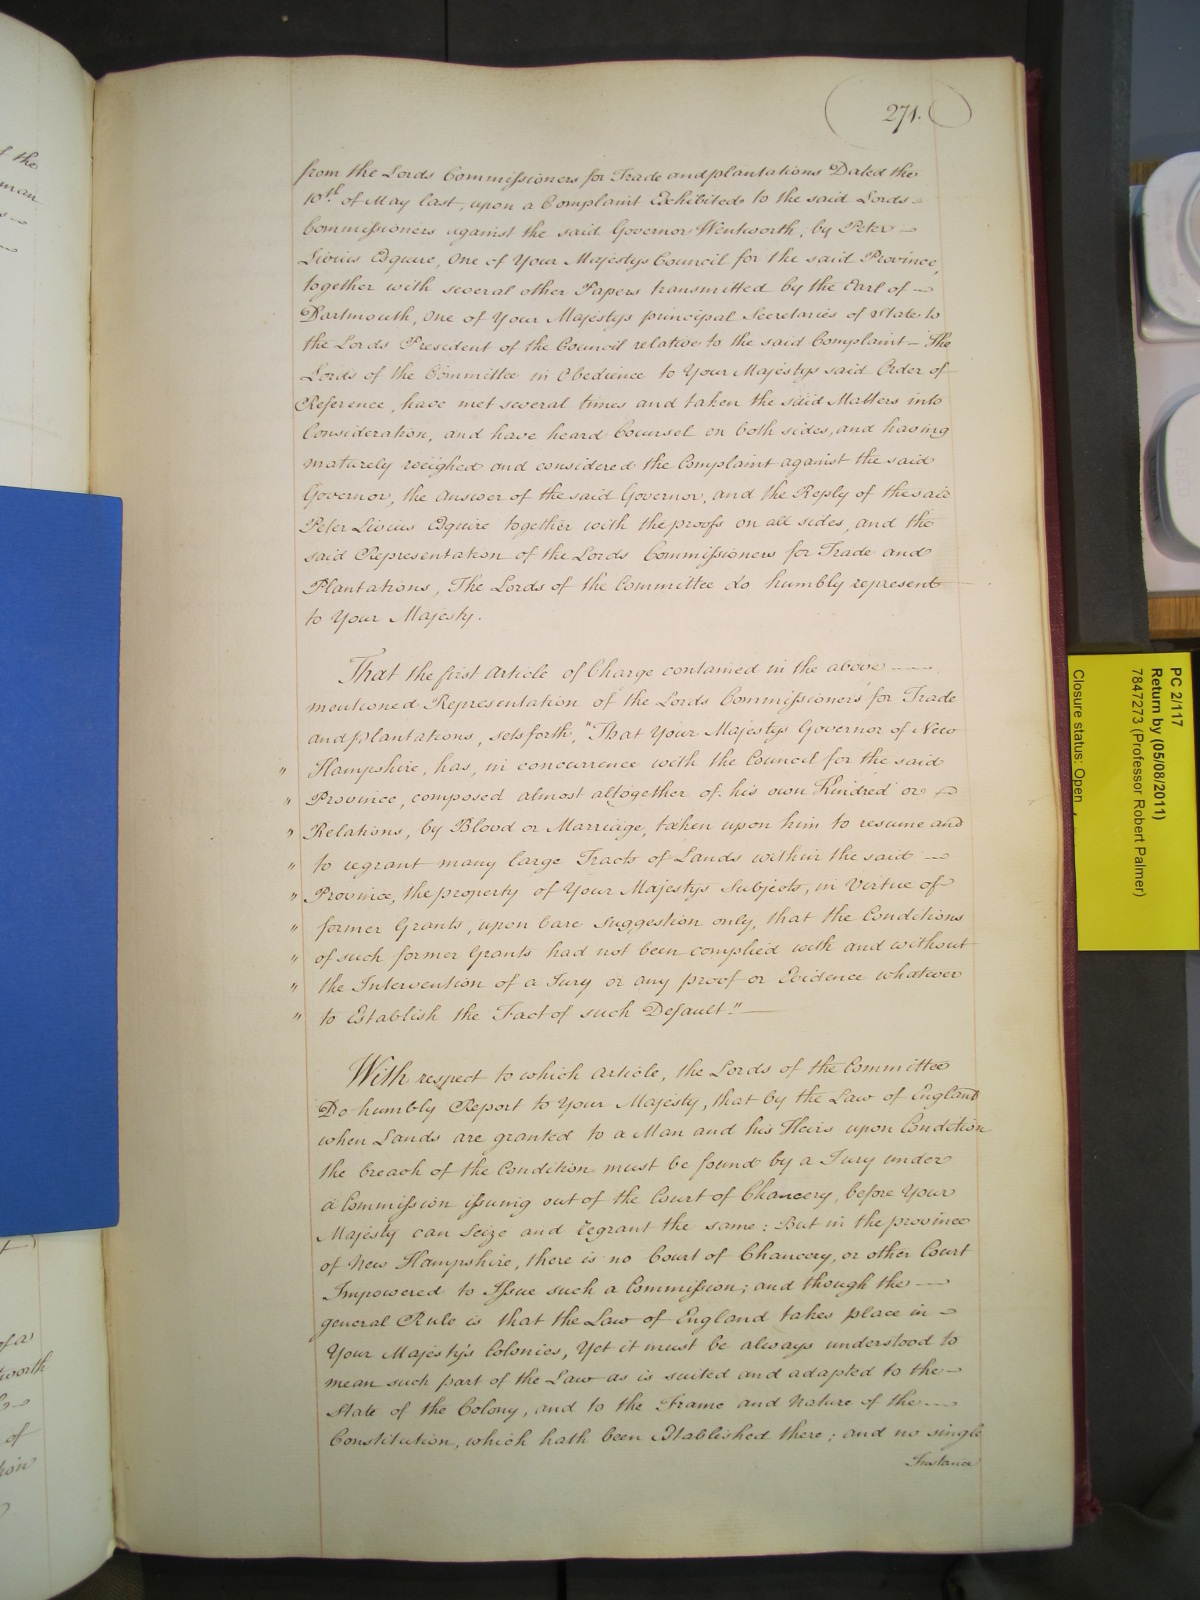 271.
from the Lords Commissioners for Trade and plantations Dated the
10th. of May last, upon a Complaint Exhibited to the said Lords
Commissioners against the said Governor Wentworth, by Peter
Livius Esquire, One of Your Majestys Council for the said Province,
together with several other Papers transmitted by the Earl of
Dartmouth, One of Your Majestys principal Secretaries of State to
the Lord President of the Council relative to the said Complaint – The
Lords of the Committee in Obedience to Your Majestys said Order of
Reference, have met several times and taken the said Matters into
Consideration, and have heard Councel on both sides, and having
maturely weighed and considered the Complaint against the said
Governor, the answer of the said Governor, and the Reply of the said
Peter Livius Esquire together with the proofs on all sides, and the
said Representation of the Lords Commissioners for Trade and
Plantations, The Lords of the Committee do humbly represent
to Your Majesty.
That the first Article of Charge contained in the above
mentioned Representation of the Lords Commissioners for Trade
and plantations, sets forth, "That Your Majestys Governor of New
" Hampshire, has, in concurrence with the Council for the said
" Province, composed almost altogether of his own Kindred or
" Relations, by Blood or Marriage, taken upon him to resume and
" to regrant many large Tracts of Lands within the said
" Province, the property of Your Majestys Subjects, in Virtue of
" former Grants, upon bare suggestion only, that the Conditions
" of such former Grants had not been complied with and without
" the Intervention of a Jury or any proof or Evidence whatever
" to Establish the Fact of such Default."
With respect to which Article, the Lords of the Committee
Do humbly Report to Your Majesty, that by the Law of England
when Lands are granted to a Man and his Heirs upon Condition
the breach of the Condition must be found by a Jury under
a Commission issuing out of the Court of Chancery, before Your
Majesty can Seize and regrant the same: But in the province
of New Hampshire, there is no Court of Chancery, or other Court
Impowered to Issue such a Commission; and though the
general Rule is that the Law of England takes place in
Your Majesty's Colonies, Yet it must be always understood to
mean such part of the Law as is suited and adapted to the
State of the Colony, and to the Frame and Nature of the
Constitution, which hath been Established there; and no single
Instance
PC 2/117
Return by (05/08/2011)
7847273 (Professor Robert Palmer)
Closure status: Open